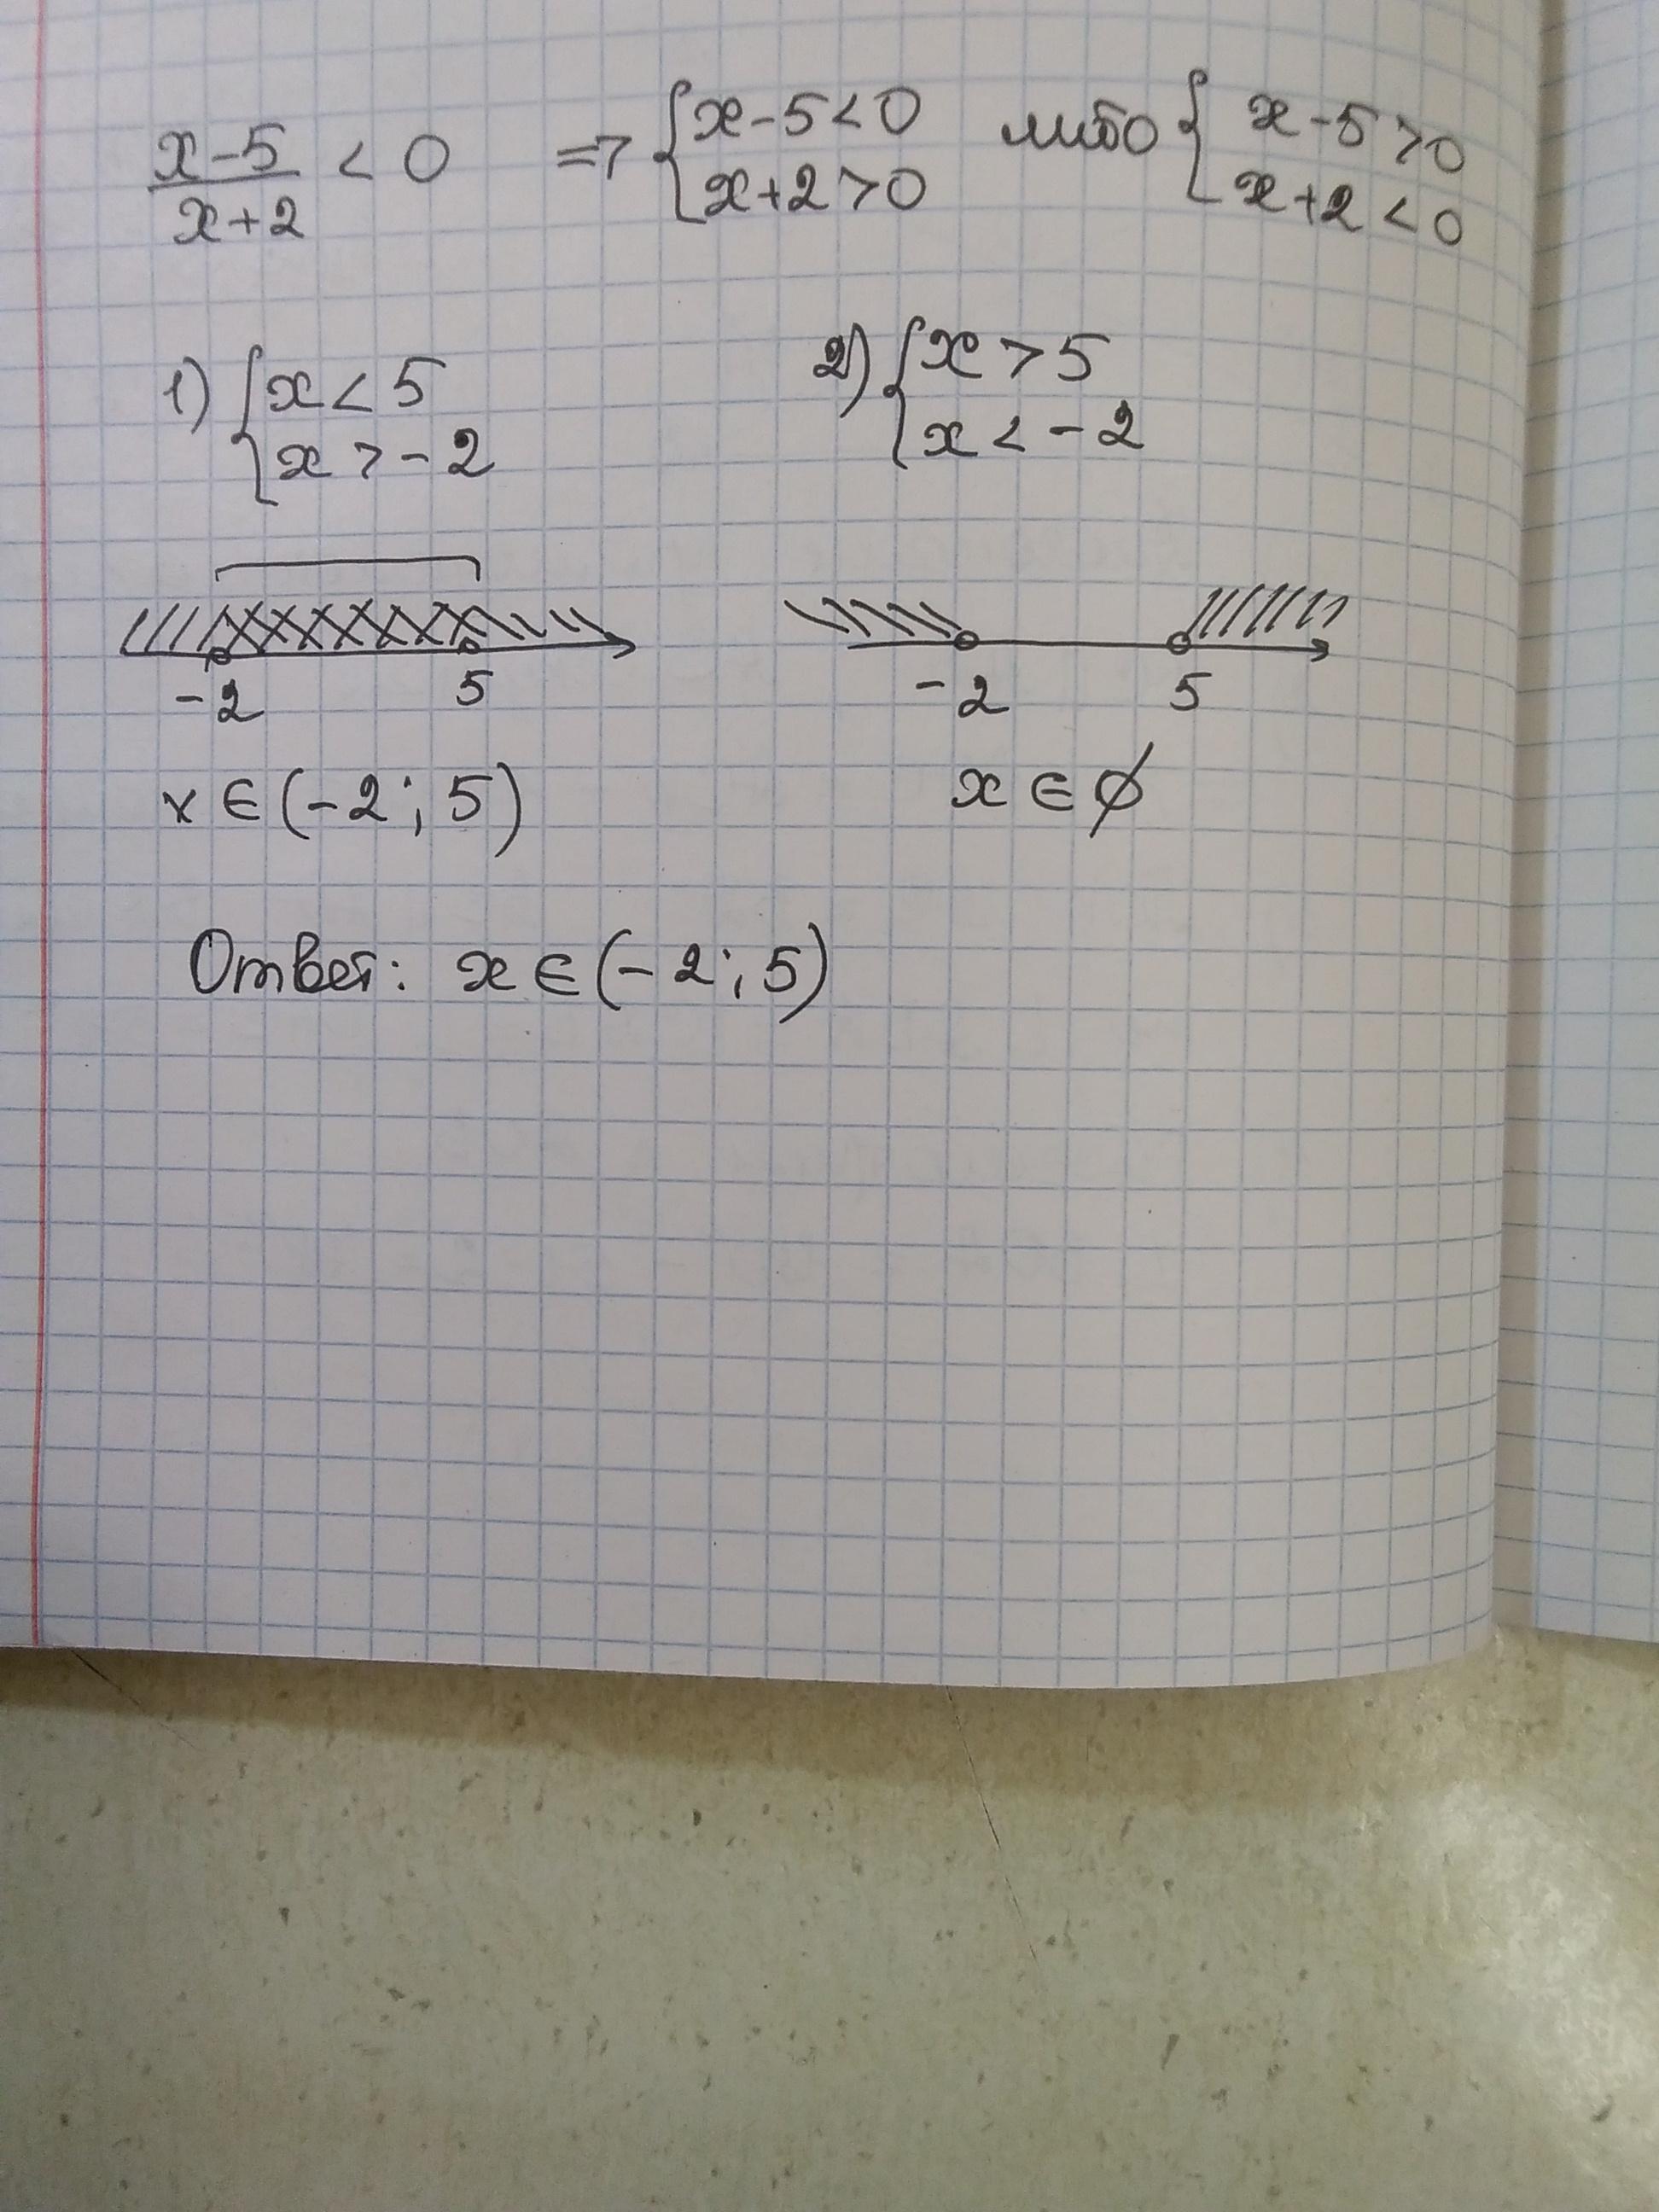 x-5/x+2 < 0 => { x-5<0 x+2>0 либо { x-5>0 x+2<0
1) { x<5 x>-2
2) { x>5 x<-2
-2 5
-2 5
x∈(-2;5)
x∈∅
Ответ: x∈(-2;5)